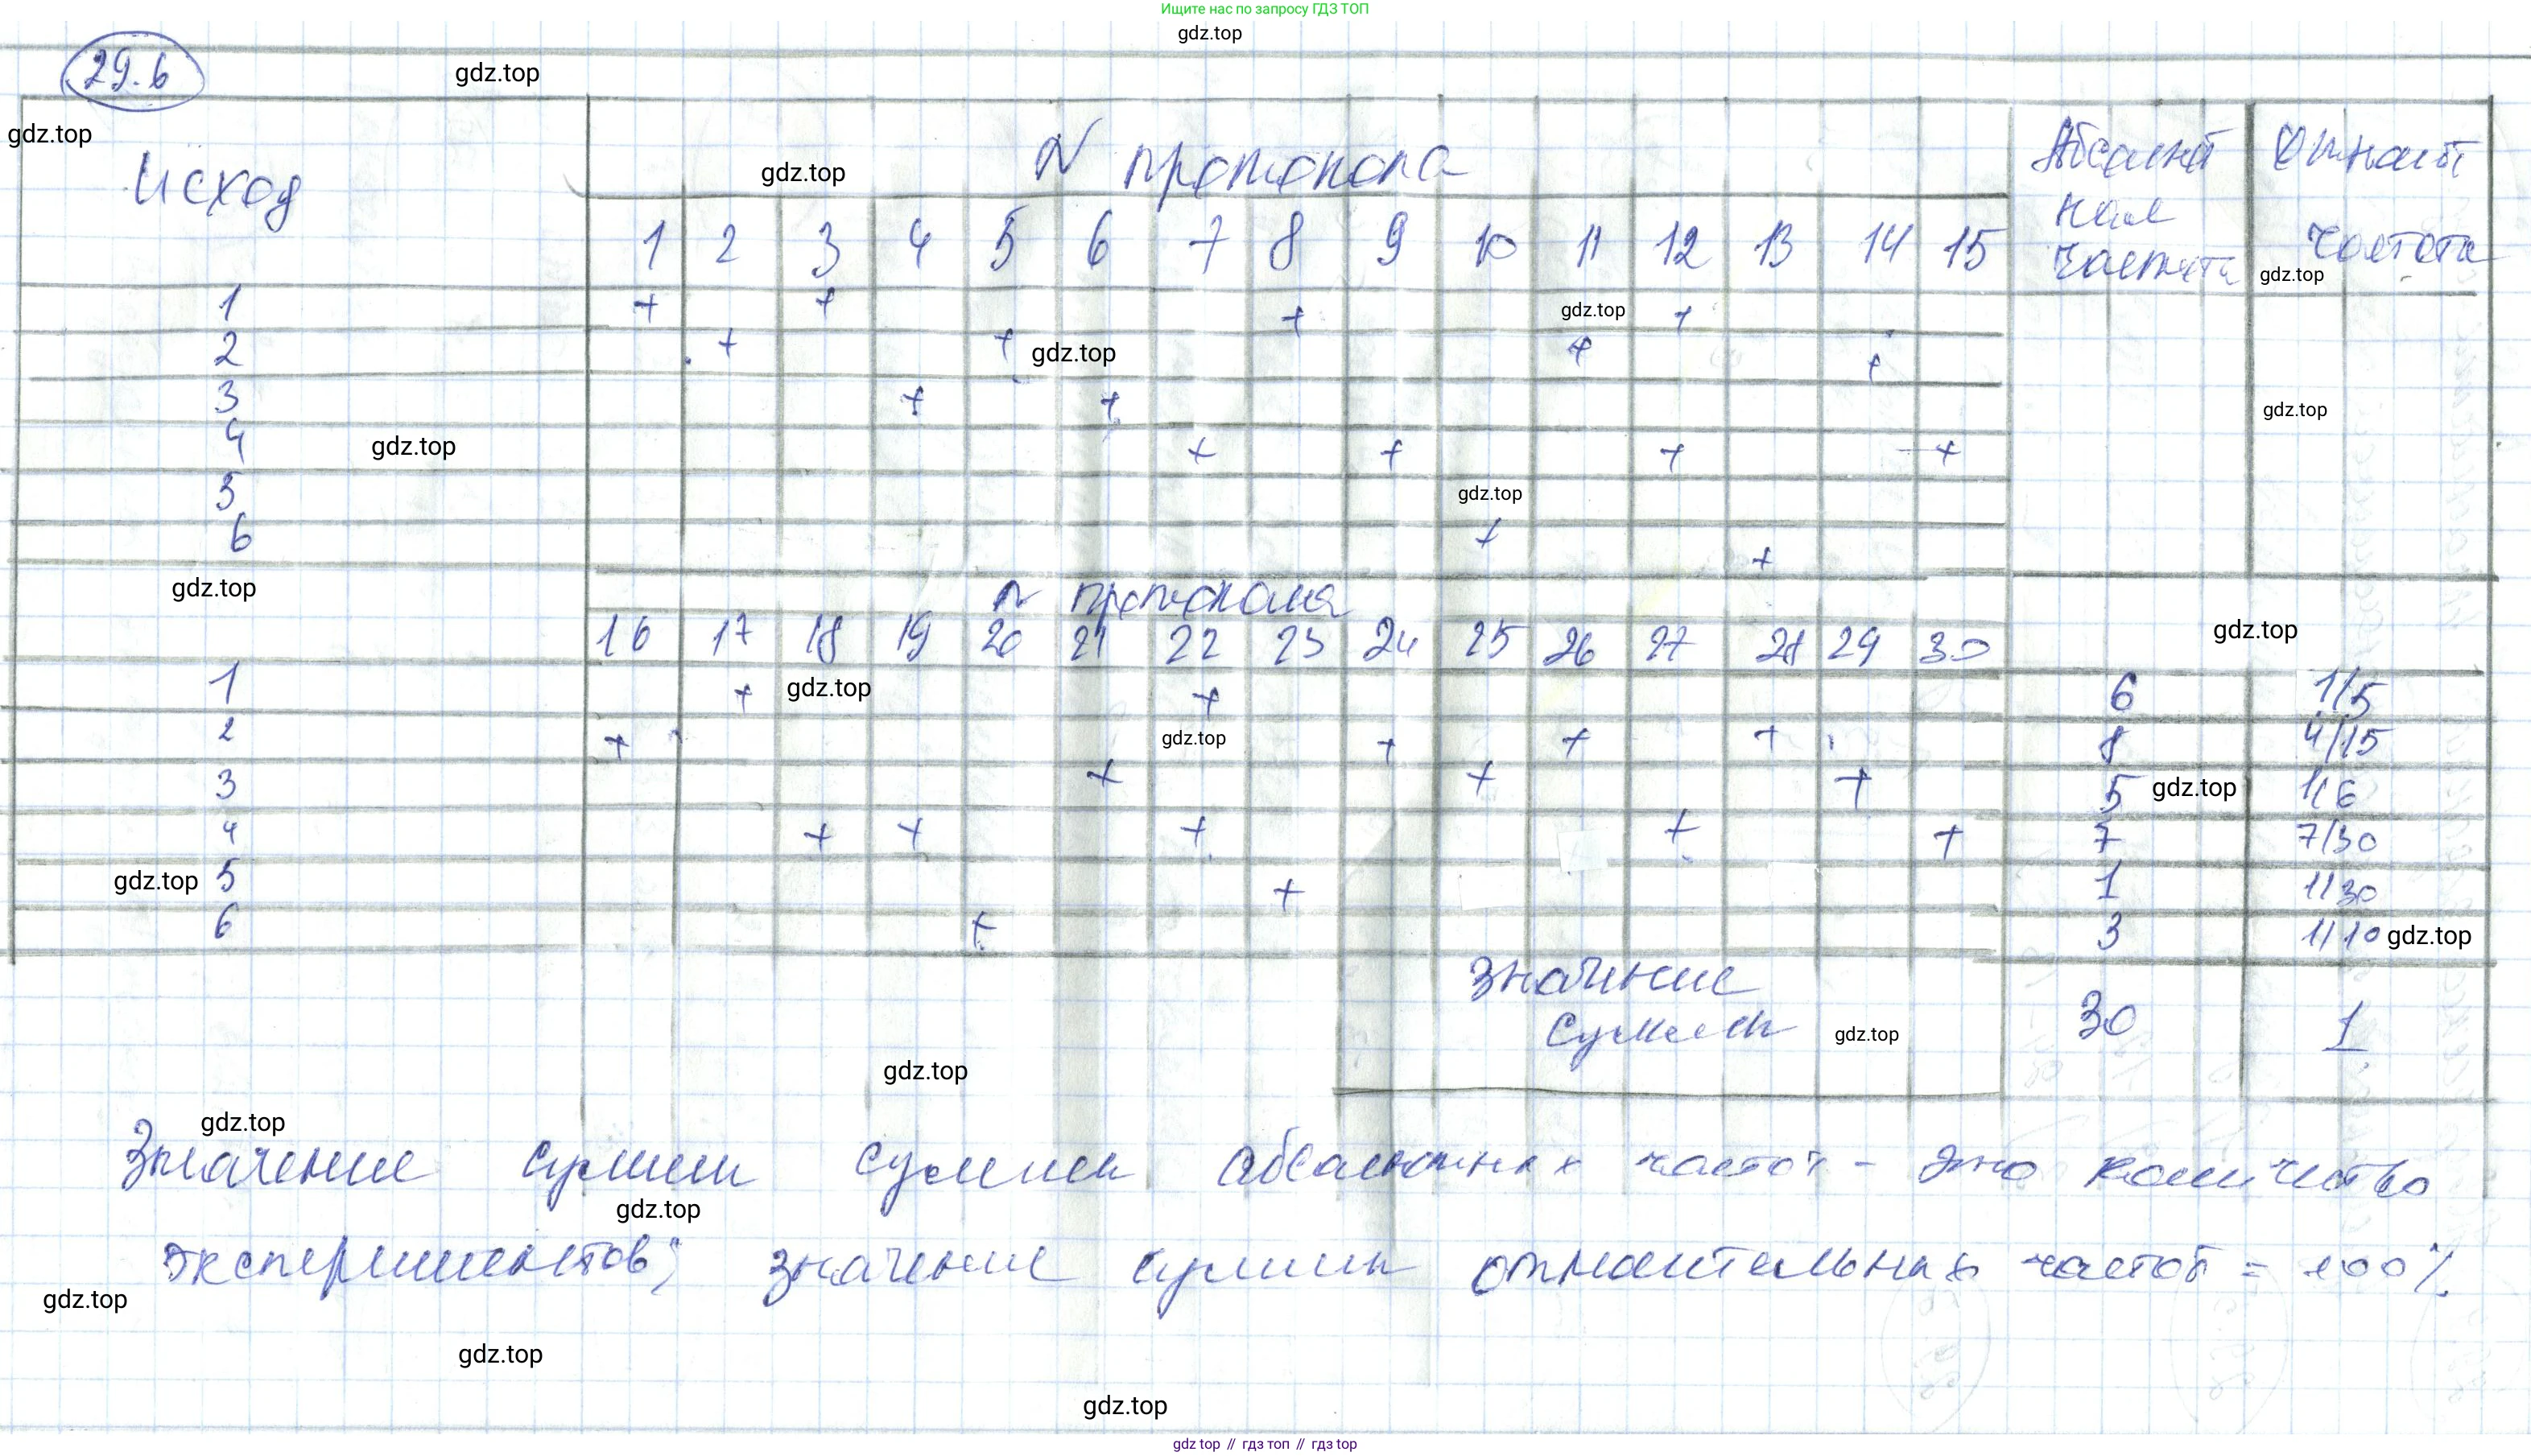 Ищите нас по запросу ГДЗ ТОП
gdz.top
29.6
gdz.top
gdz.top
Исход
gdz.top
N протокола
1 2 3 4 5 6 7 8 9 10 11 12 13 14 15
Абсолют
ная
частота
Относит
частота
gdz.top
1 + + + gdz.top +
2 + + gdz.top + +
3 + + gdz.top
4 gdz.top + + + +
5 gdz.top
6 + +
gdz.top
N протокола
16 17 18 19 20 21 22 23 24 25 26 27 28 29 30 gdz.top
1 + gdz.top + 6 1/5
2 + gdz.top + + + 8 4/15
3 + + + 5 gdz.top 1/6
4 + + + + + 7 7/30
gdz.top 5 + 1 1/30
6 + 3 1/10 gdz.top
значение
суммы gdz.top 30 1
gdz.top
gdz.top
Значение суммы суммы абсолютных частот - это количество
gdz.top
экспериментов; значение суммы относительных частот = 100%
gdz.top
gdz.top
gdz.top
gdz top // гдз топ // гдз top